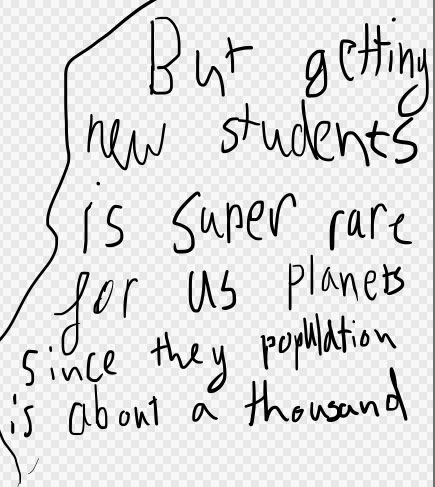 But getting
new students
is super rare
for us planets
since they population
is about a thousand